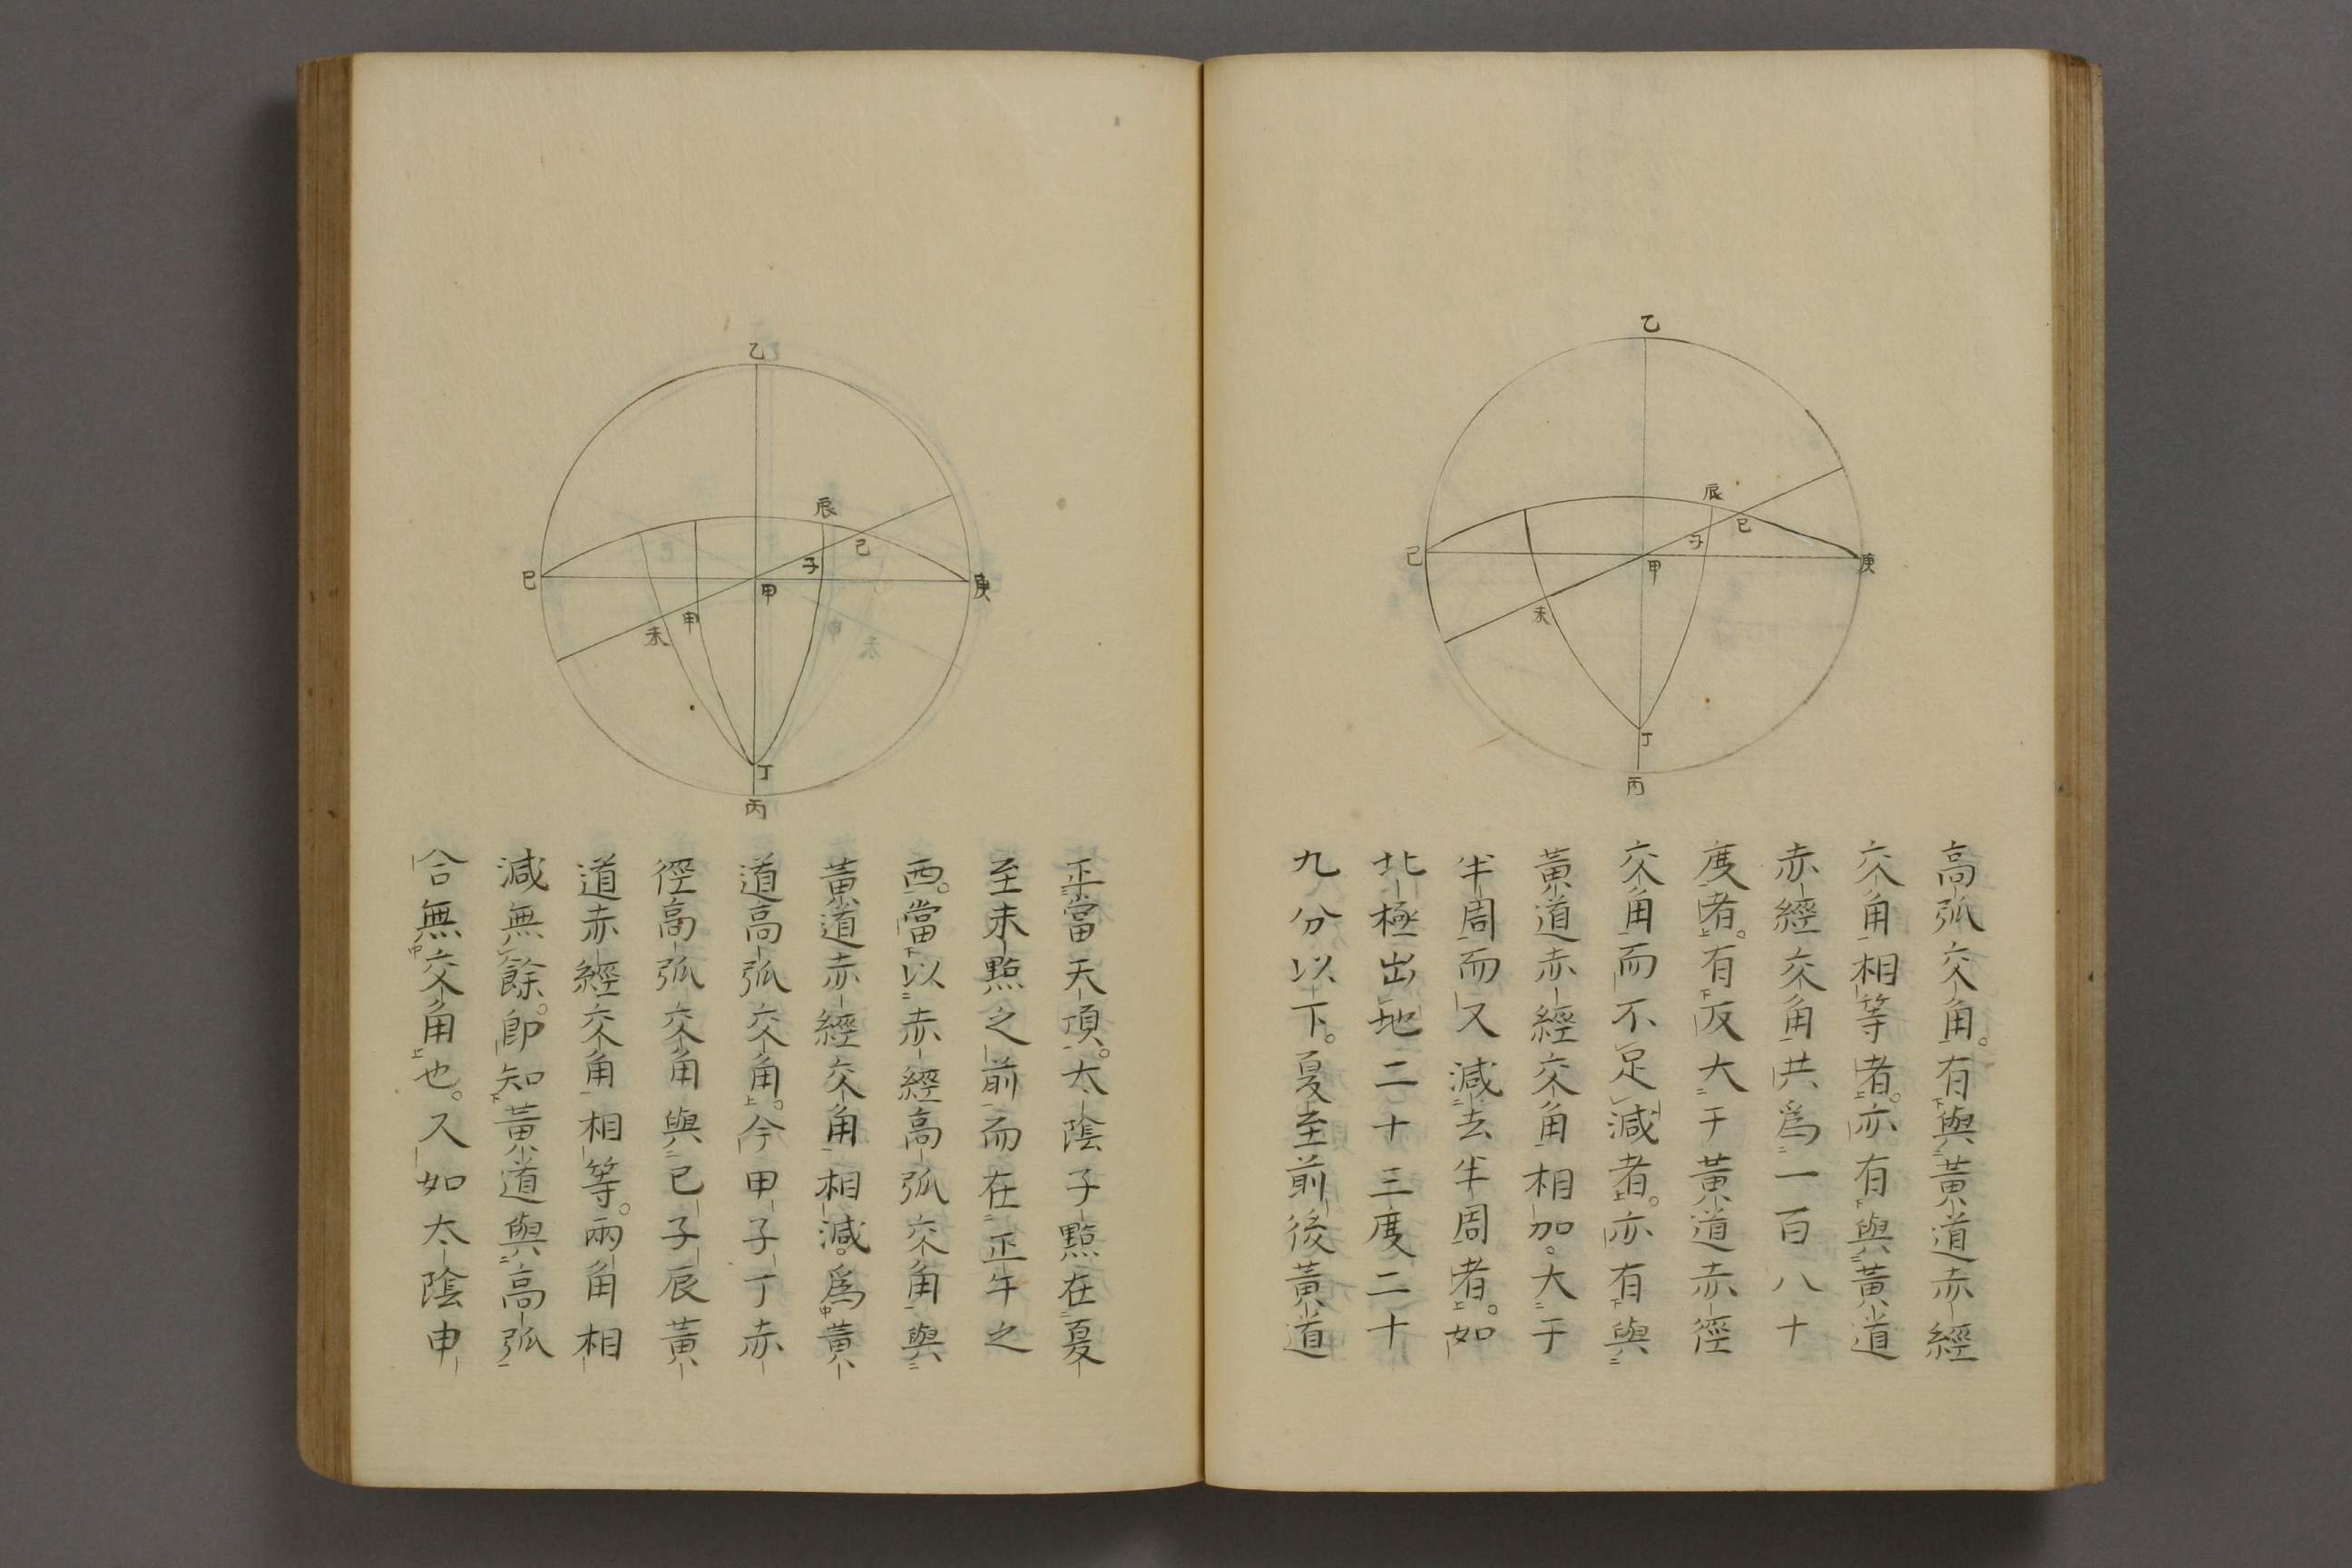 乙
辰
巳
子
己
甲
庚
未
丁
丙
高弧交角。有與黃道赤經
交角相等者。亦有與黃道
赤經交角共爲一百八十
度者。有反大于黃道赤徑
交角而不足減者。亦有與
黃道赤經交角相加。大于
半周而又減去半周者。如
北極出地二十三度二十
九分以下。夏至前後黃道
乙
辰
己
子
巳
甲
庚
申
未
丁
丙
正當天頂。太陰子點在夏
至未點之前而在正午之
西。當以赤經高弧交角與
黃道赤經交角相減。爲黃
道高弧交角。今甲子丁赤
徑高弧交角與巳子辰黃
道赤經交角相等。兩角相
減無餘。卽知黃道與高弧
合無交角也。又如太陰申